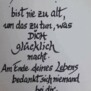 bist nie zu alt,
um das zu tun, was
DICH
glücklich
macht.
Am Ende deines Lebens
bedankt sich niemand
bei dir